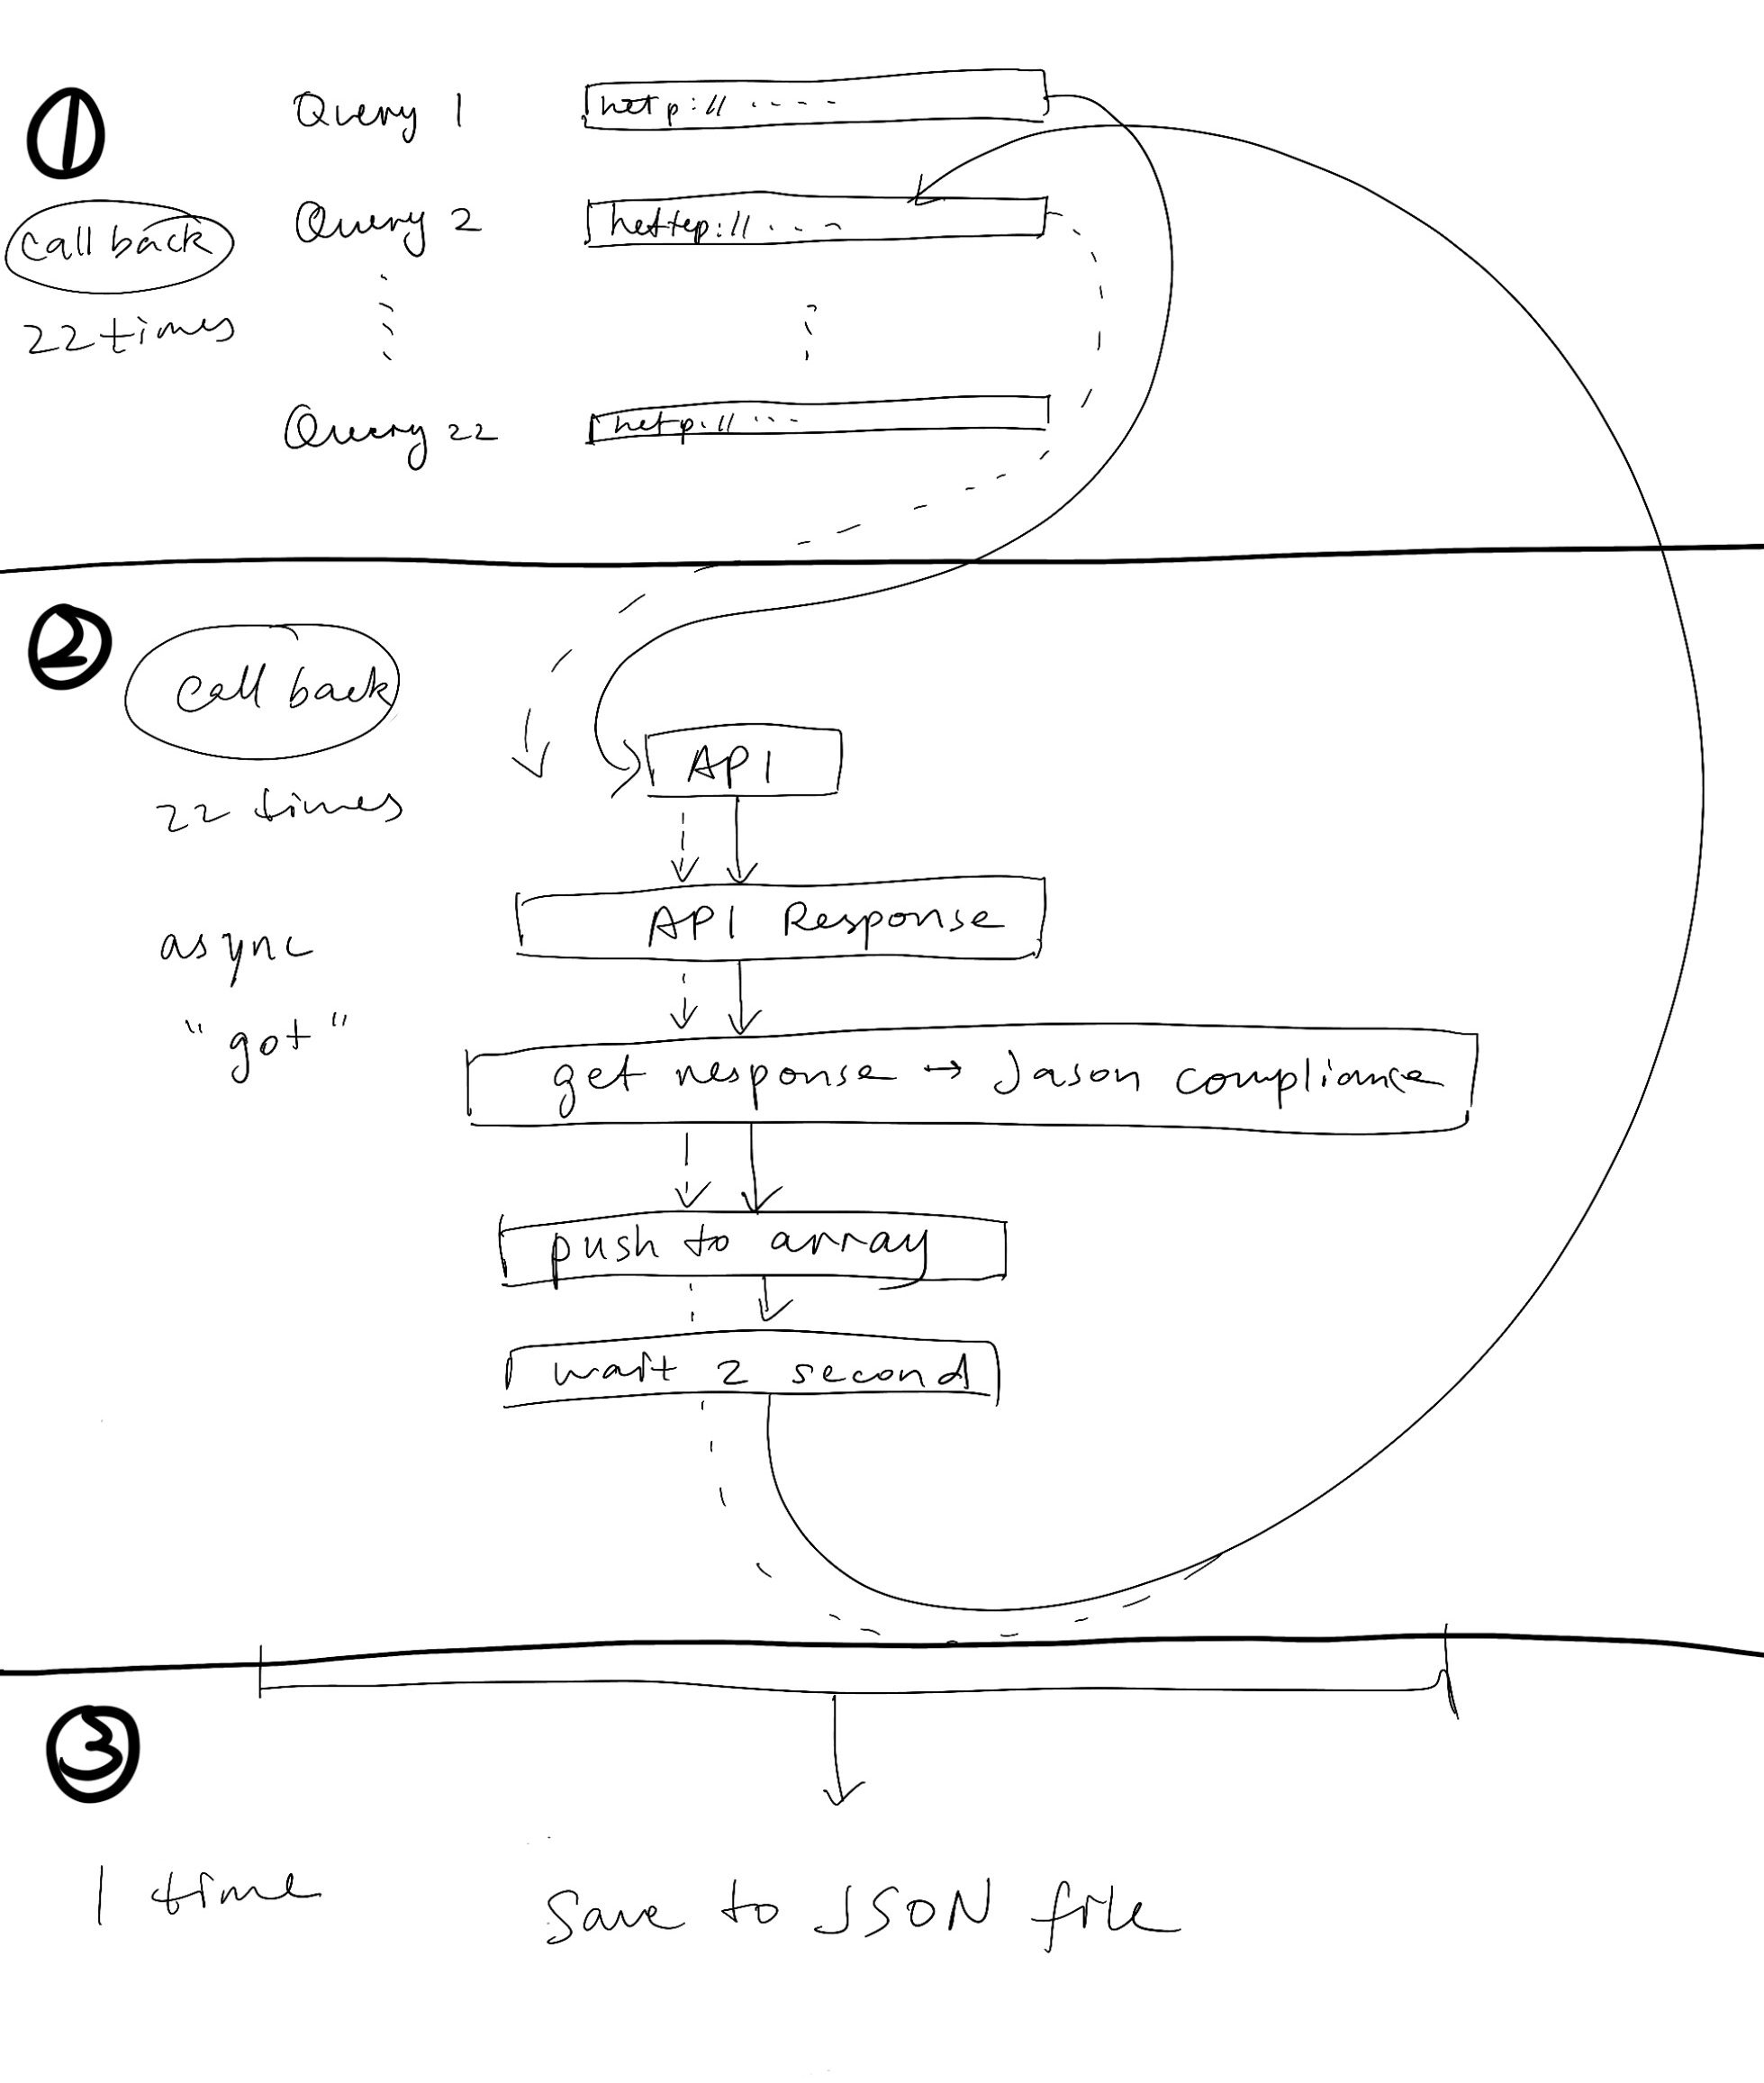 1
Query 1 http:// ....
call back
Query 2 http:// ...
22 times
Query 22 http:// ...
2
Call back
API
22 times
API Response
async
"got"
get response → Jason compliance
push to array
wait 2 second
3
1 time
Save to JSON file